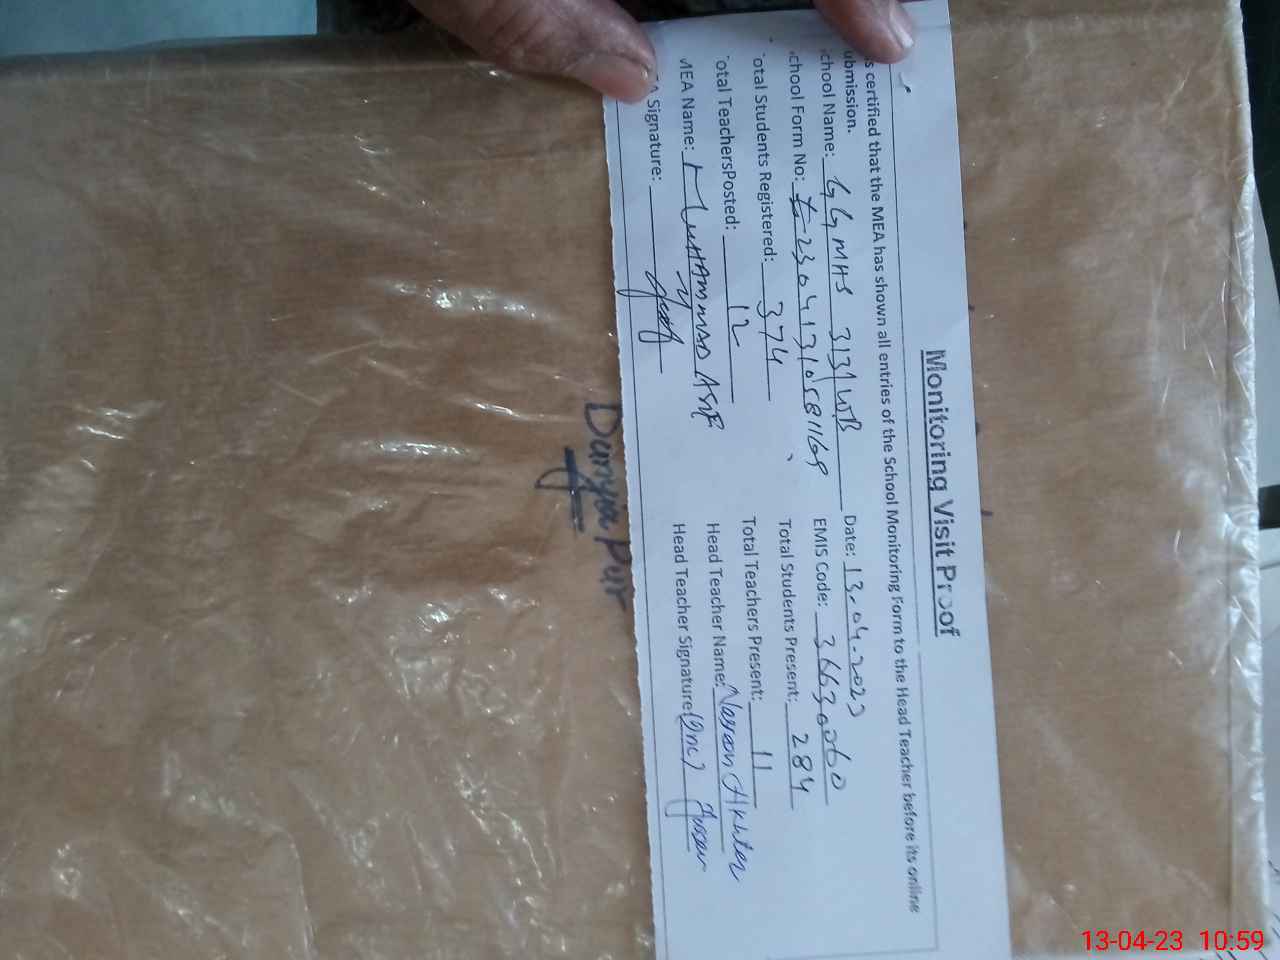 Monitoring Visit Proof
s certified that the MEA has shown all entries of the School Monitoring Form to the Head Teacher before its online
ubmission.
chool Name: GGMHS 313/WB Date: 13-04-2023
chool Form No: 23041310581169 EMIS Code: 36630060
otal Students Registered: 374 Total Students Present: 284
otal TeachersPosted: 12 Total Teachers Present: 11
MEA Name: MUHAMMAD ASIF Head Teacher Name: Nasreen Akhter
A Signature: Head Teacher Signature:
Dunya Pur
13-04-23 10:59